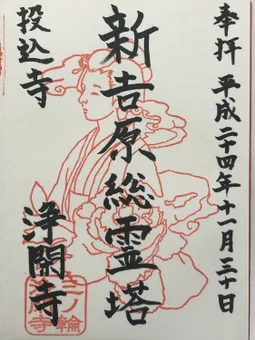 奉拝 平成二十四年十一月三十日
新吉原総霊塔
投込寺
浄閑寺